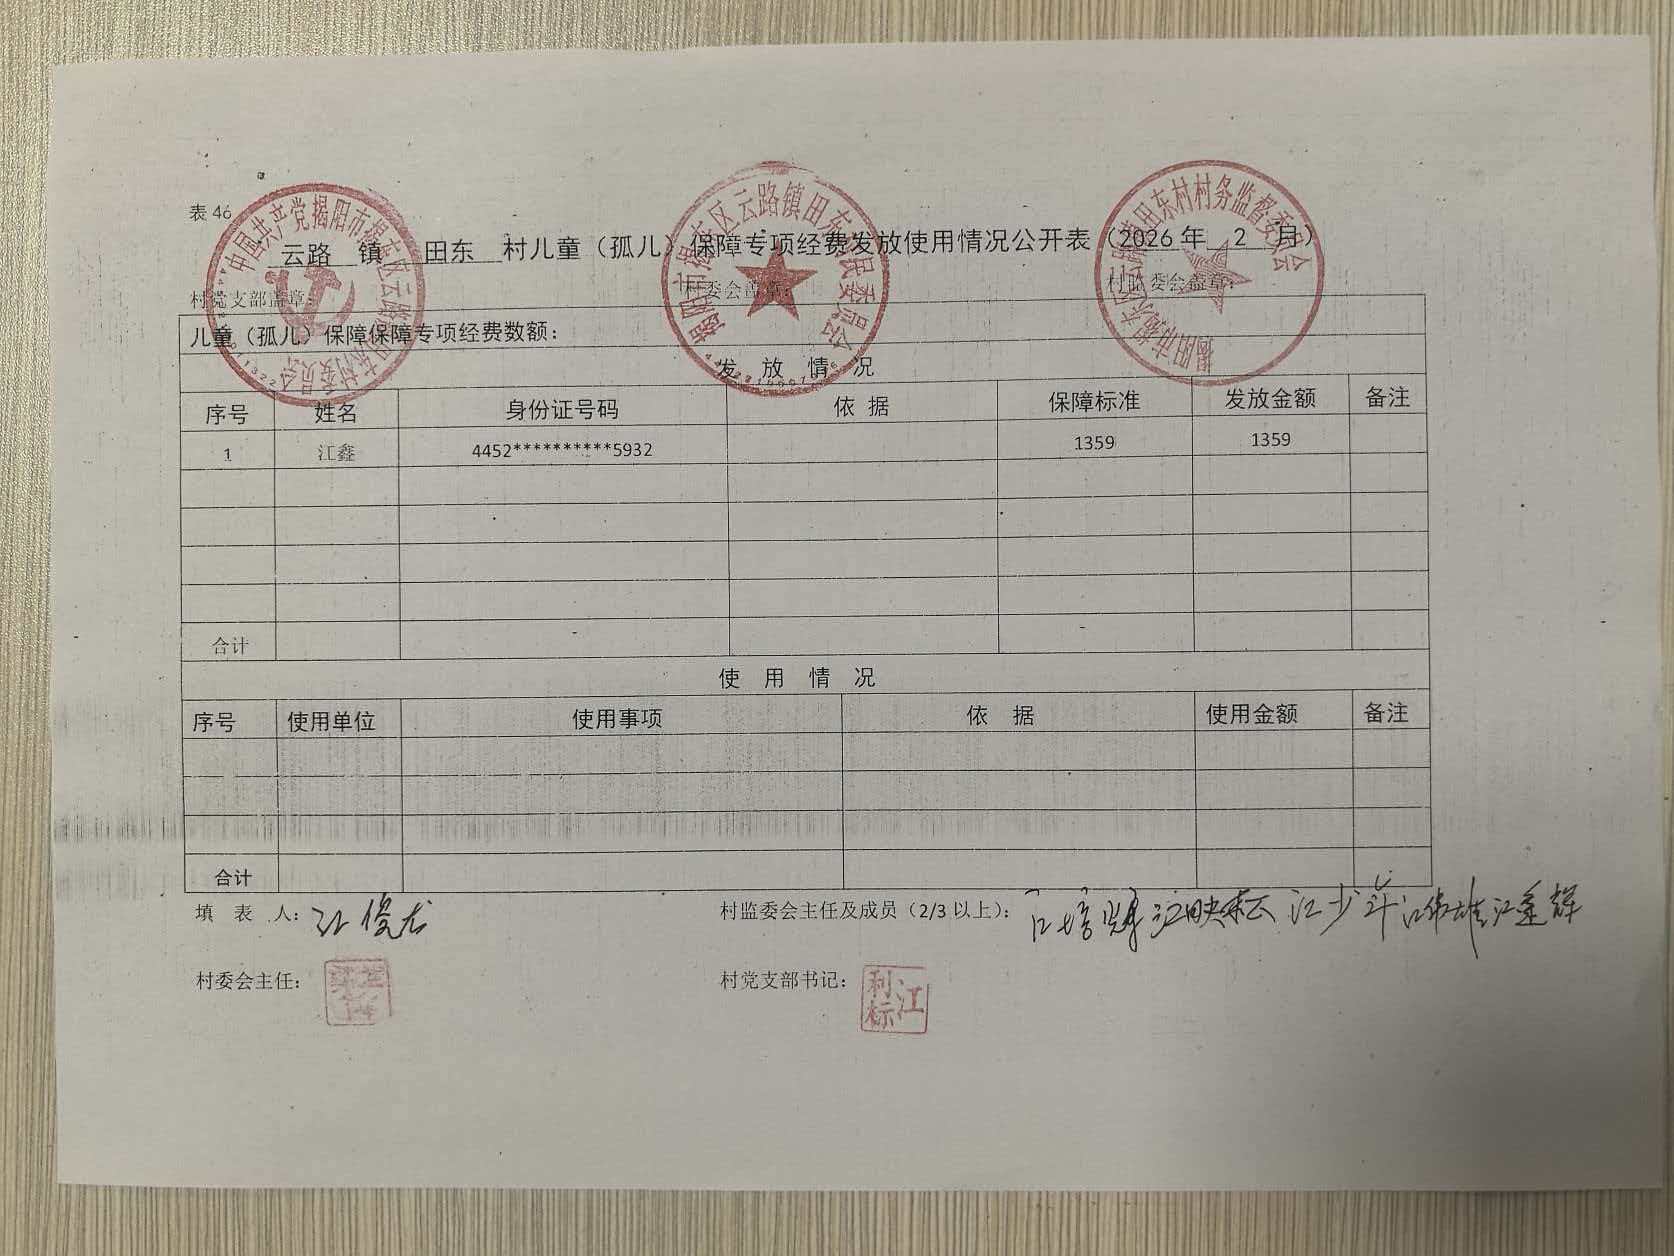 表 46
云路 镇 田东 村儿童（孤儿）保障专项经费发放使用情况公开表（2026 年 2 月）
村党支部盖章： 村委会盖章： 村监委会盖章：
儿童（孤儿）保障保障专项经费数额：
发 放 情 况
序号 姓名 身份证号码 依 据 保障标准 发放金额 备注
1 江鑫 4452**********5932 1359 1359
合计
使 用 情 况
序号 使用单位 使用事项 依 据 使用金额 备注
合计
填 表 人：江俊龙 村监委会主任及成员（2/3 以上）：
村委会主任： 村党支部书记：江利标
中国共产党揭阳市揭东区云路镇田东村委员会
揭阳市揭东区云路镇田东村民委员会
揭阳市揭东区云路镇田东村村务监督委员会